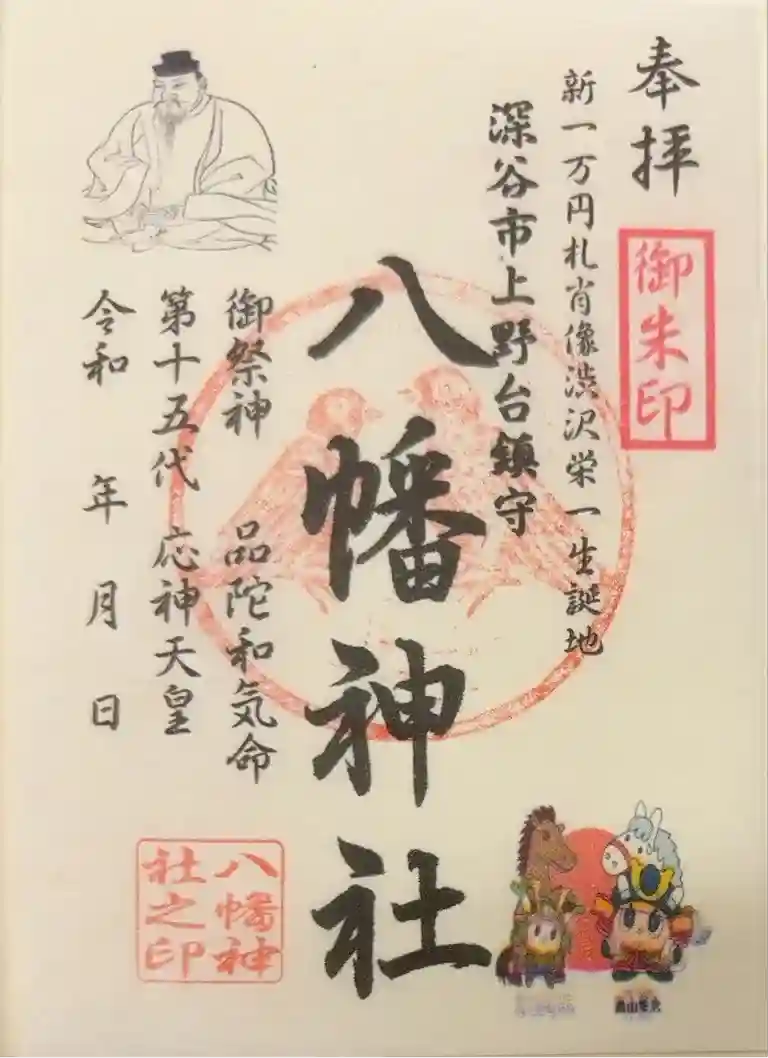 奉拝
御朱印
新一万円札肖像渋沢栄一生誕地
深谷市上野台鎮守
八幡神社
御祭神　品陀和気命
第十五代　応神天皇
令和　年　月　日
八幡神
社之印